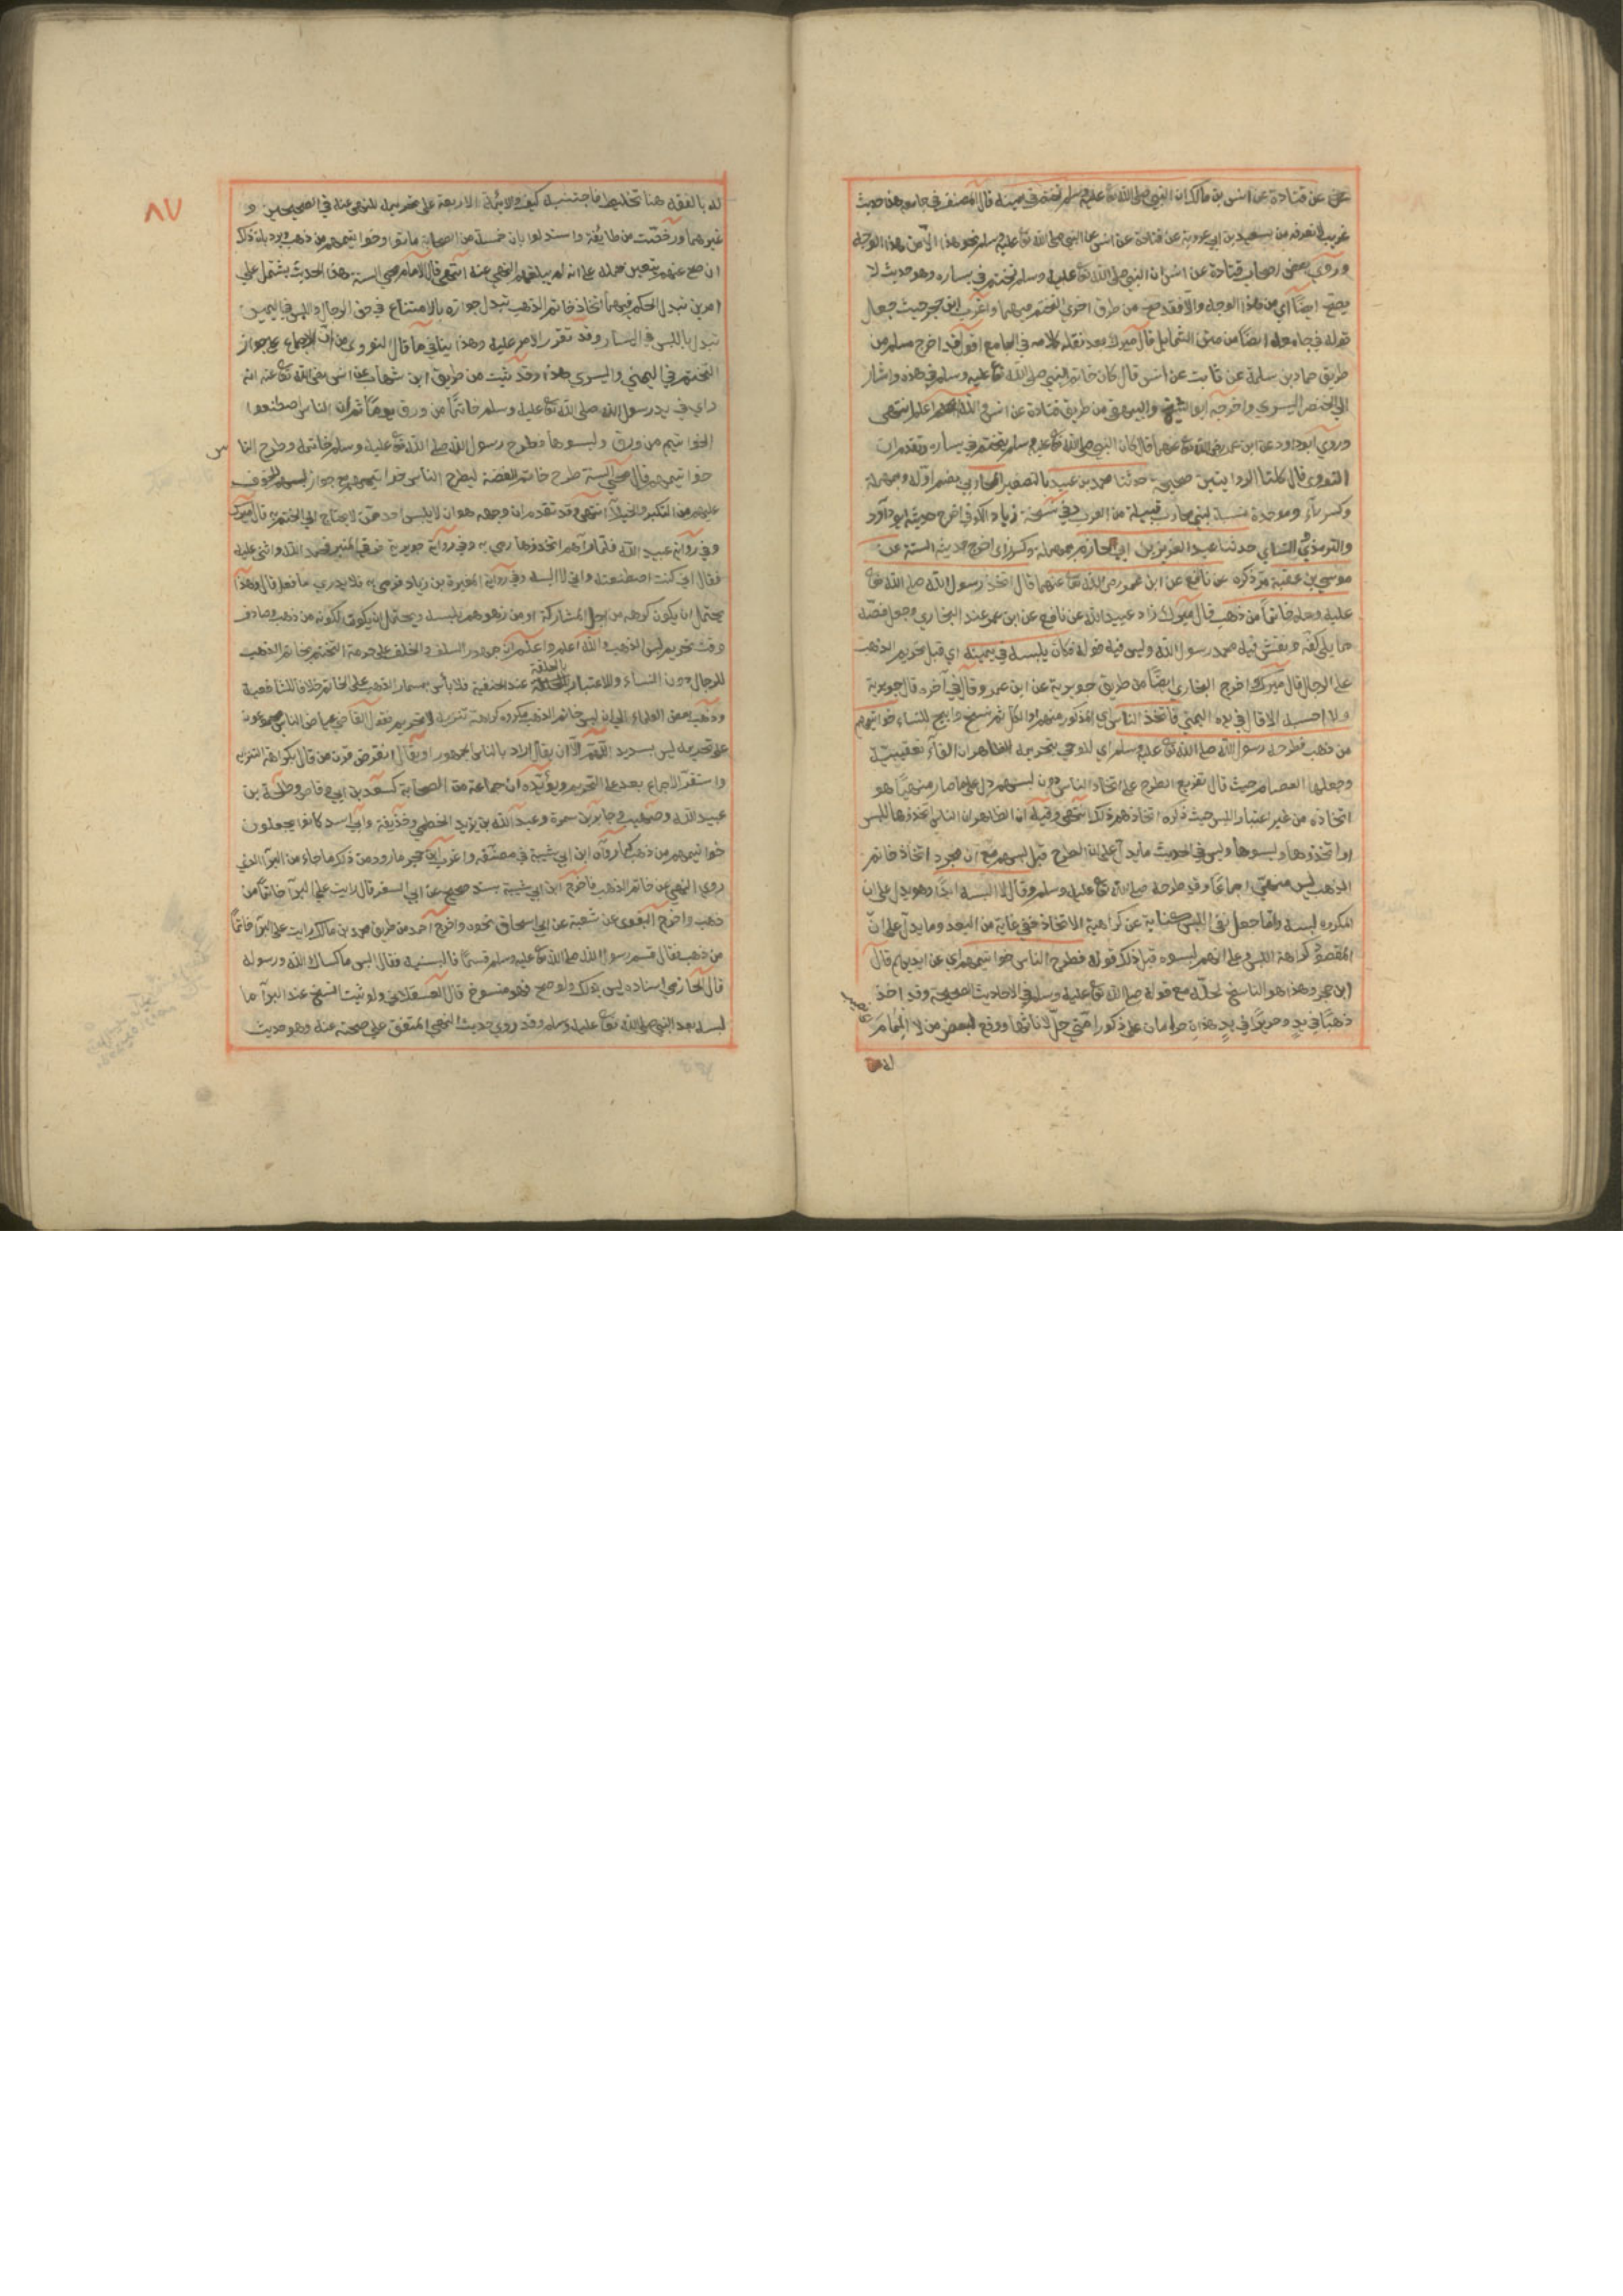 عن قتادة عن انس بن مالك ان النبي صلى الله تع عليه وسلم تختم في يمينه قال المصنف في جامعه هذا حديث
غريب لا نعرفه من سعيد بن ابي عروبة عن قتادة عن انس عن النبي صلى الله تع عليه وسلم نحو هذا الا من هذا الوجه
وروى بعض اصحاب قتادة عن انس ان النبي صلى الله تع عليه وسلم تختم في يساره وهو حديث لا
يصح ايضا اي من هذا الوجه والا فقد صح من طرق اخرى التختم فيهما واغرب ابن حجر حيث جعل
قوله في جامعه ايضا من متن الشمايل قال ميرك بعد نقله كلامه في الجامع اقول قد اخرج مسلم من
طريق حماد بن سلمة عن ثابت عن انس قال كان خاتم النبي صلى الله تع عليه وسلم في هذه واشار
الى الخنصر اليسرى واخرجه ابو الشيخ والبيهقي من طريق قتادة عن انس والله اعلم انتهى
وروى ابو داود عن ابن عمر رضي الله تع عنهما قال كان النبي صلى الله تع عليه وسلم يتختم في يساره وتقدم ان
النووي قال كلتا الروايتين صحيحة حدثنا محمد بن عبيد بالتصغير المحاربي بضم اوله وبمهملة
وكسر راء وموحدة نسبة لبني محارب قبيلة من العرب وفي نسخة زياد الكوفي اخرج حديثه ابو داود
والترمذي والنساي حدثنا عبد العزيز بن ابي حازم بمهملة وكسر زاي اخرج حديثه الستة عن
موسى بن عقبة مر ذكره عن نافع عن ابن عمر رضي الله تعا عنهما قال اتخذ رسول الله صلى الله تعا
عليه وسلم خاتما من ذهب قال ميرك زاد عبيد الله عن نافع عن ابن عمر عند البخاري وجعل فصه
مما يلي كفه ونقش فيه محمد رسول الله وليس فيه قوله فكان يلبسه في يمينه اي قبل تحريم الذهب
على الرجال قال ميرك اخرج البخاري ايضا من طريق جويرية عن ابن عمر وقال في آخره قال جويرية
ولا احسبه الا قال في يده اليمنى فاتخذ الناس اي المذكور منهم او الكل ثم نسخ وابيح للنساء خواتيم
من ذهب فطرحه رسول الله صلى الله تع عليه وسلم اي للوحي بتحريمه الظاهر ان الفاء تعقيبية
وجعلها العصام حيث قال تفريع الطرح على اتخاذ الناس دون لبسهم دل على ما صار منهيا هو
اتخاذه من غير اعتبار اللبس حيث ذكره اتخاذهم ذلك انتهى وفيه ان الظاهر ان الناس اتخذوها للبس
او اتخذوها ولبسوها وليس في الحديث ما يدل على ان الطرح قبل لبسهم مع ان مجرد اتخاذ خاتم
الذهب ليس منهي اجماعا وقد طرحه صلى الله تع عليه وسلم وقال لا البسه ابدا وهو يدل على ان
المكروه لبسه واما جعل نفي اللبس كناية عن كراهية الاتخاذ ففي غاية من البعد ومما يدل على ان
المقصود كراهة اللبس وعلى انهم لبسوه قبل ذلك قوله فطرح الناس خواتيمهم اي عن ايديهم قال
ابن حجر وهذا هو الناسخ لحله مع قوله صلى الله تع عليه وسلم في الاحاديث الصحيحة وقد اخذ
ذهبا في يد وحريرا في يد هذان حرامان على ذكور امتي حل لاناثها ووقع لبعض من لا المام
له
٨٧
له بالفقه هنا تخليط فاجتنبه كيف والائمة الاربعة على تحريمه للنهي عنه في الصحيحين و
غيرهما ورخصت من طايفة واستدلوا بان خمسة من الصحابة ماتوا وخواتيمهم من ذهب ويرد بان ذلك
ان صح عنهم يتعين حمله على انه لم يبلغهم النهي عنه انتهى قال الامام محي السنة هذا الحديث يشتمل على
امرين تبدل الحكم فيهما اتخاذ خاتم الذهب تبدل جوازه بالامتناع في حق الرجال واللبس في اليمين
تبدل باللبس في اليسار وقد تقرر الامر عليه وهذا ينافي ما قال النووي من ان الاجماع على جواز
التختم في اليمنى واليسرى هذا وقد ثبت من طريق ابن شهاب عن انس رضي الله تع عنه انه
راى في يد رسول الله صلى الله تع عليه وسلم خاتما من ورق يوما ثم ان الناس اصطنعوا
الخواتيم من ورق ولبسوها فطرح رسول الله صلى الله تع عليه وسلم خاتمه وطرح النا س
خواتيمهم قال محي السنة طرح خاتم الفضة ليطرح الناس خواتيمهم مع جواز لبسه للخوف
عليهم من التكبر والخيلاء انتهى وقد تقدم ان وجهه هو ان لا يلبس احد ممن لا يحتاج الى الختم به قال ميرك
وفي رواية عبيد الله فلما رآهم اتخذوها رمى به وفي رواية جويرية فرقي المنبر فحمد الله واثنى عليه
فقال اني كنت اصطنعته واني لا البسه وفي رواية المغيرة بن زياد فرمى به فلا يدرى ما فعل قال وهذا
يحتمل ان يكون كرهه من اجل المشاركة او من زهوهم بلبسه ويحتمل ان يكون لكونه من ذهب وصادف
وقت تحريم لبس الذهب والله اعلم واعلم ان جمهور السلف والخلف على حرمة التختم بخاتم الذهب
للرجال دون النساء والاعتبار بالحلقة عند الحنفية فلا باس بمسمار الذهب على الخاتم خلافا للشافعية
وذهب بعض العلماء الى ان لبس خاتم الذهب مكروه كراهة تنزيه لا تحريم فقول القاضي عياض الناس مجمعون
على تحريمه ليس بسديد اللهم الا ان يقال اراد بالناس الجمهور او يقال انقرض قرن من قال بكراهة التنزيه
واستقر الاجماع بعد على التحريم ويؤيده ان جماعة من الصحابة كسعد بن ابي وقاص وطلحة بن
عبيد الله وصهيب وجابر بن سمرة وعبد الله بن يزيد الخطمي وحذيفة وابي اسيد كانوا يجعلون
خواتيمهم من ذهب كما رواه ابن ابي شيبة في مصنفه واغرب ابن حجر ما ورد من ذلك ما جاء من البراء الذي
روى النهي عن خاتم الذهب فاخرج ابن ابي شيبة بسند صحيح عن ابي السفر قال رايت على البراء خاتما من
ذهب واخرج البغوي عن شعبة عن ابي اسحاق نحوه واخرج احمد من طريق محمد بن مالك رايت على البراء خاتما
من ذهب فقال قسم رسول الله صلى الله تع عليه وسلم قسما فالبسنيه فقال البس ما كساك الله ورسوله
قال الحازمي اسناده ليس بذلك ولو صح فهو منسوخ قال العسقلاني ولو ثبت النسخ عند البراء ما
لبسه بعد النبي صلى الله تعا عليه وسلم وقد روى حديث النهي المتفق على صحته عنه وهو حديث